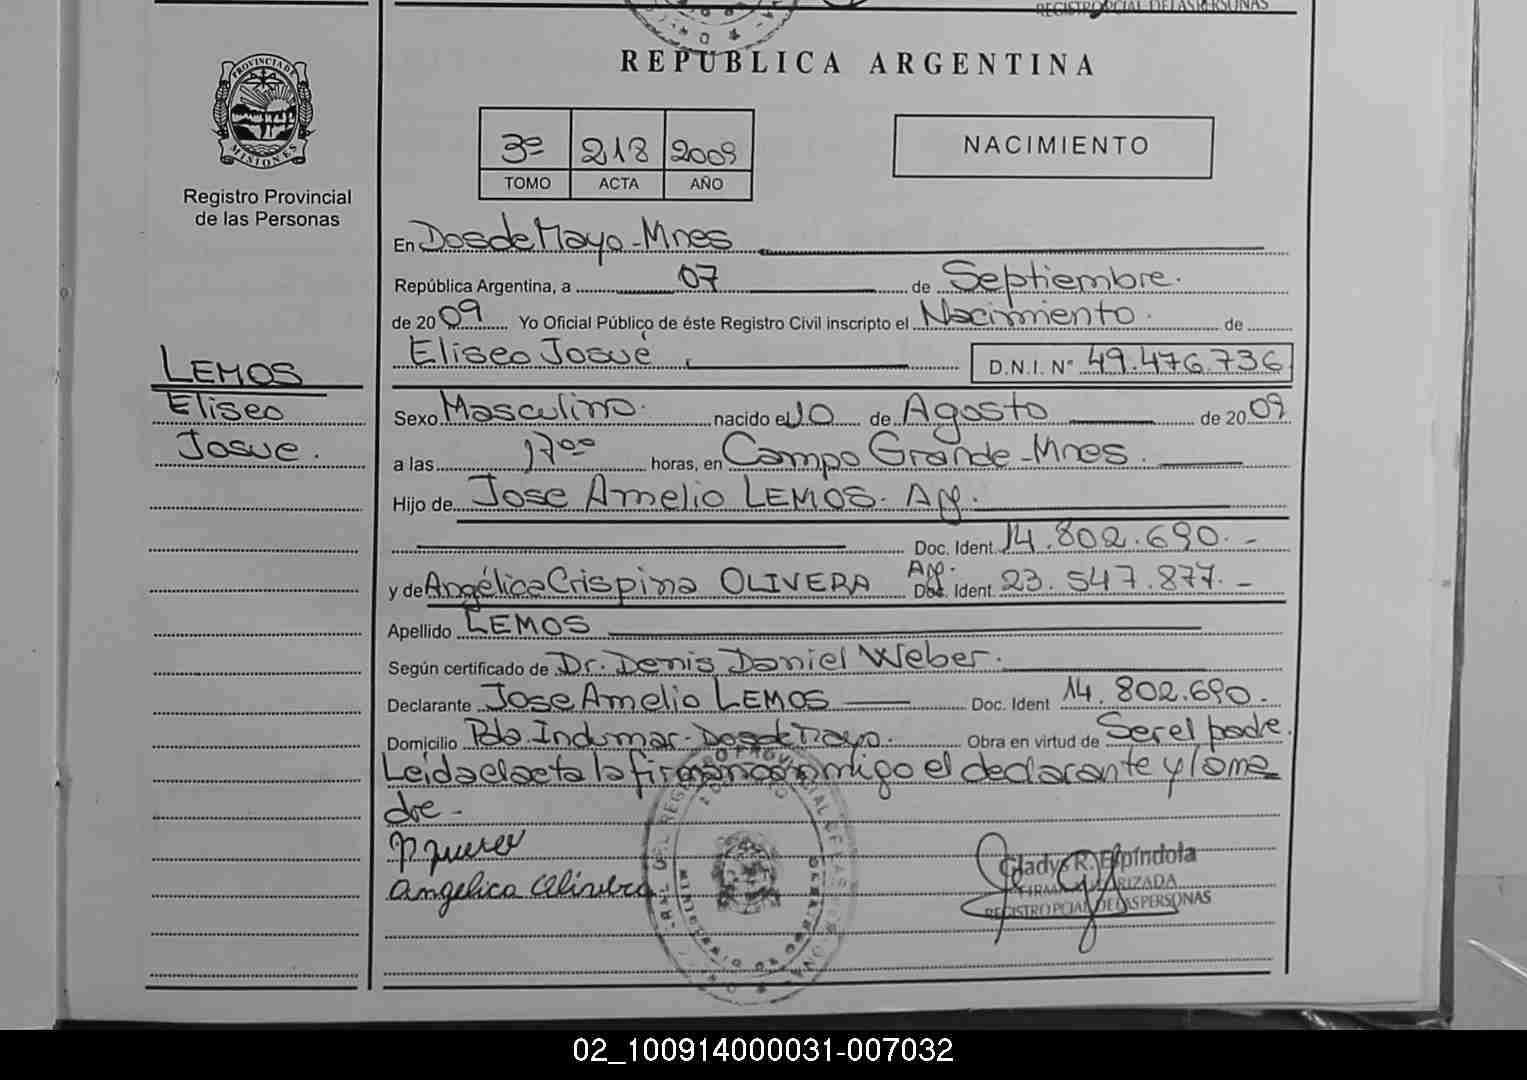 REGISTRO PCIAL DE LAS PERSONAS
REPUBLICA ARGENTINA
PROVINCIA DE
MISIONES
Registro Provincial
de las Personas
3º 218 2009
TOMO ACTA AÑO
NACIMIENTO
En Dos de Mayo - Mnes
República Argentina, a 07 de Septiembre.
de 2009 Yo Oficial Público de éste Registro Civil inscripto el Nacimiento. de
Eliseo Josué D.N.I. Nº 49.476.736
LEMOS
Eliseo
Josue.
Sexo Masculino. nacido el 10 de Agosto de 2009
a las 17ºº horas, en Campo Grande - Mnes.
Hijo de Jose Amelio LEMOS. Arg.
Doc. Ident. 14.802.690. -
y de Angélica Crispina OLIVERA Arg. Doc. Ident. 23.547.877. -
Apellido LEMOS
Según certificado de Dr. Denis Daniel Weber.
Declarante Jose Amelio LEMOS Doc. Ident 14.802.690.
Domicilio Pda Indumar - Dos de Mayo. Obra en virtud de Ser el padre.
Leida el acta la firman conmigo el declarante y la ma
dre -
Angelica Olivera
Gladys R. Espíndola
FIRMA AUTORIZADA
REGISTRO PCIAL DE LAS PERSONAS
02_100914000031-007032